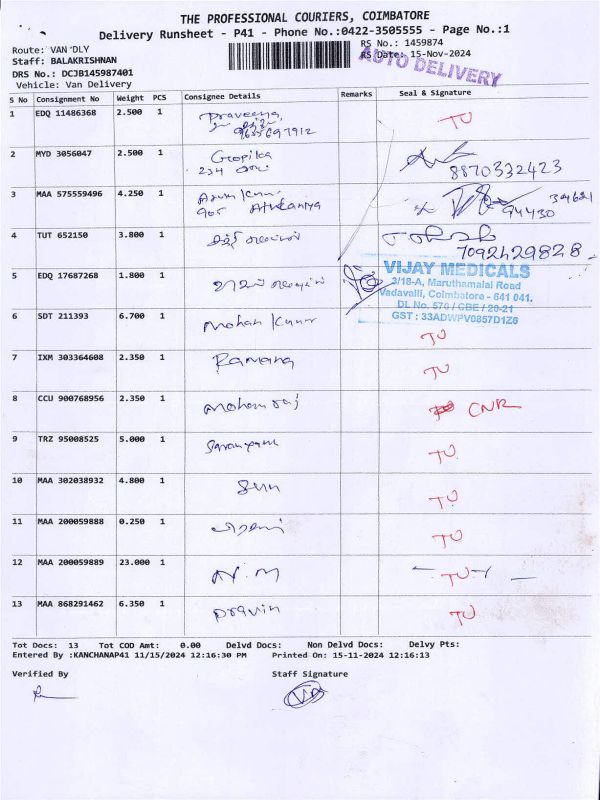 THE PROFESSIONAL COURIERS, COIMBATORE
Delivery Runsheet - P41 - Phone No.:0422-3505555 - Page No.:1
Route: VAN DLY
RS No.: 1459874
Staff: BALAKRISHNAN
RS Date: 15-Nov-2024
AUTO DELIVERY
DRS No.: DCJB145987401
Vehicle: Van Delivery
S No Consignment No Weight PCS Consignee Details Remarks Seal & Signature
1 EDQ 11486368 2.500 1 Praveena, TU
2 MYD 3056047 2.500 1 Gopika 8870332423
3 MAA 575559496 4.250 1 Arun Kumar
4 TUT 652150 3.800 1 7092429828
5 EDQ 17687268 1.800 1
VIJAY MEDICALS
3/18-A, Maruthamalai Road
Vadavalli, Coimbatore - 641 041.
DL No. 570 / CBE / 20-21
GST : 33ADWPV0857D1Z6
6 SDT 211393 6.700 1 Mohan Kumar TU
7 IXM 303364608 2.350 1 Ramana TU
8 CCU 900768956 2.350 1 Mohanraj CNR
9 TRZ 95008525 5.000 1 TU
10 MAA 302038932 4.800 1 TU
11 MAA 200059888 0.250 1 TU
12 MAA 200059889 23.000 1 N.M TU
13 MAA 868291462 6.350 1 Pravin TU
Tot Docs: 13 Tot COD Amt: 0.00 Delvd Docs: Non Delvd Docs: Delvy Pts:
Entered By :KANCHANAP41 11/15/2024 12:16:30 PM Printed On: 15-11-2024 12:16:13
Verified By Staff Signature